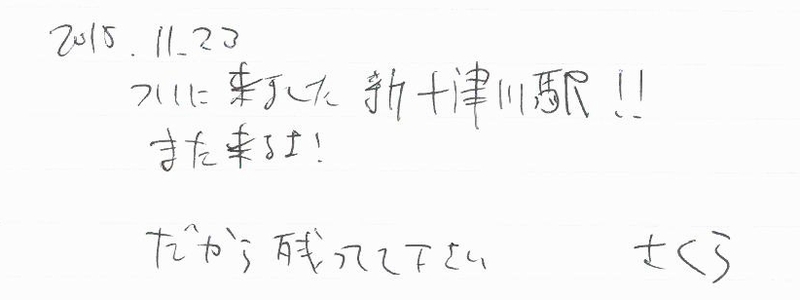 2015.11.23
ついに来ました 新十津川駅!!
また来るよ!
だから残ってて下さい さくら